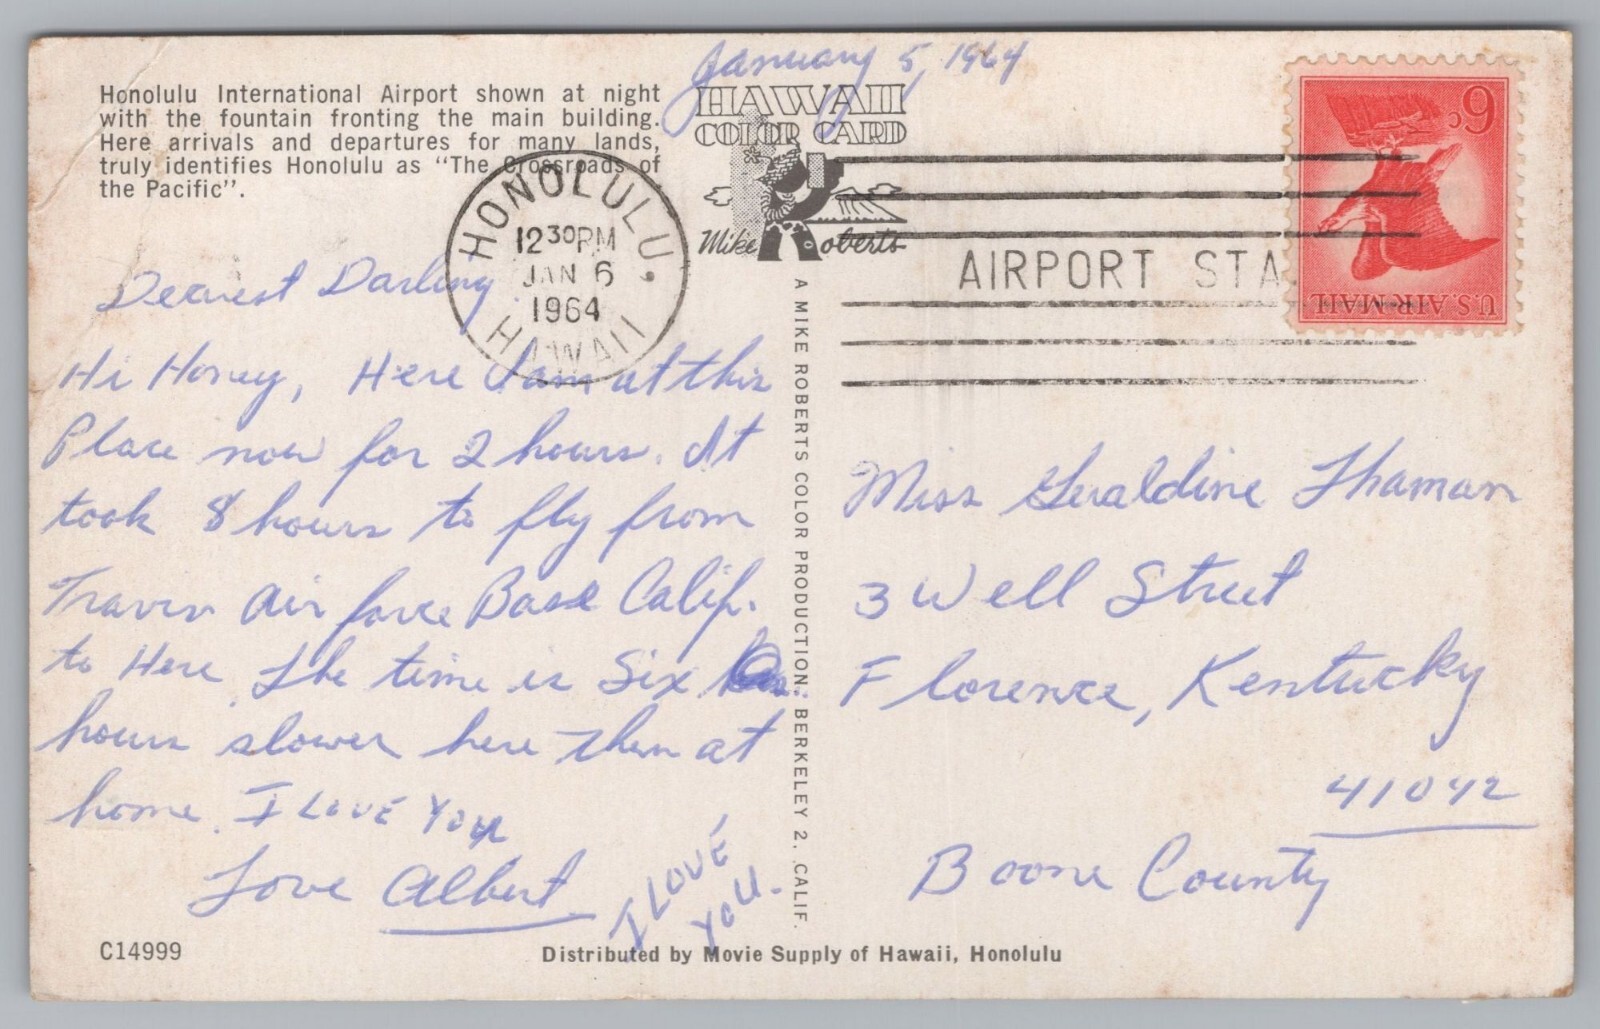 January 5, 1964
Honolulu International Airport shown at night
with the fountain fronting the main building.
Here arrivals and departures for many lands,
truly identifies Honolulu as "The Crossroads of
the Pacific".
HAWAII
COLOR CARD
Mike Roberts
HONOLULU,
12 30 PM
JAN 6
1964
HAWAII
AIRPORT STA.
6c
U.S. AIR MAIL
Dearest Darling,
Hi Honey, Here I am at this
Place now for 2 hours. It
took 8 hours to fly from
Travis Air force Base Calif.
to Here. The time is Six
hours slower here then at
home. I LOVE YOU
Love Albert
I LOVE
YOU.
A MIKE ROBERTS COLOR PRODUCTION, BERKELEY 2, CALIF.
Miss Geraldine Thaman
3 Well Street
Florence, Kentucky
41042
Boone County
C14999
Distributed by Movie Supply of Hawaii, Honolulu